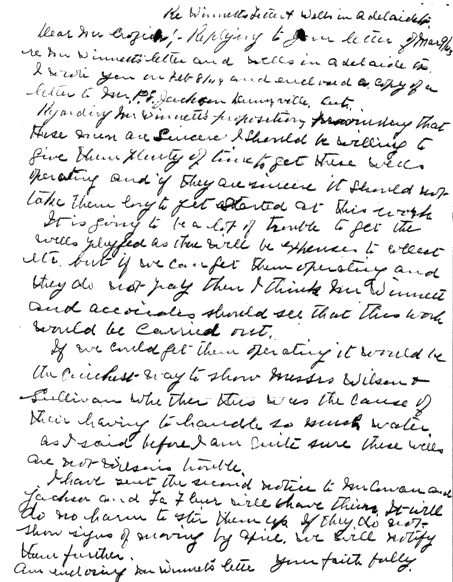 Re Winnetts Letter & Wells in Adelaide Tp.
Dear Mr Crozier:- Replying to your letter of Mar 9/43
re Mr Winnetts letter and wells in Adelaide Tp.
I wrote you on Feb 8/43 and enclosed a copy of a
letter to Mr. P.S. Jackson Dunnville, Ont.
Regarding Mr Winnetts proposition, providing that
these men are sincere I should be willing to
give them plenty of time to get these wells
operating and if they are sincere it should not
take them long to get started at this work
It is going to be a lot of trouble to get the
wells plugged as there will be expenses to collect
etc. but if we can get them operating and
they do not pay then I think Mr Winnett
and associates should see that this work
would be carried out.
If we could get them operating it would be
the quickest way to show Messrs Wilson &
Sullivan whether this was the cause of
their having to handle so much water
as I said before I am quite sure these wells
are not Wilsons trouble.
I have sent the second notice to McCowan and
Jackson and La Fleur will have theirs. It will
do no harm to stir them up. If they do not
show signs of moving by Apr., we will notify
them further.
Am enclosing Mr Winnetts letter Yours faithfully.